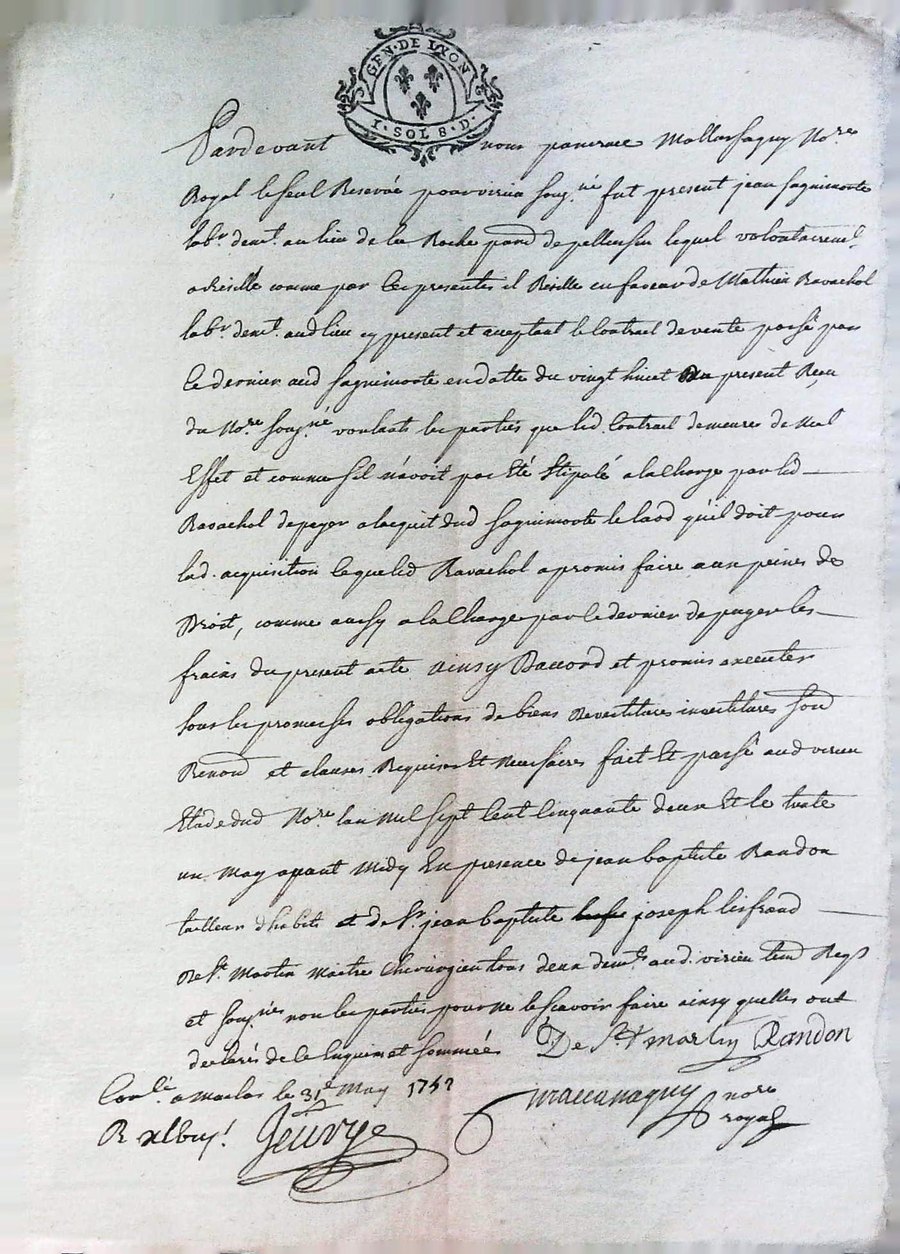 GEN · DE LYON
1 · SOL 8 · D ·
Pardevant nous pancrace No.re
Royal le seul Reservé pour virieu soug.né fut present jean saguimorte
lab.r dem.t au lieu de la Roche par.d de pellussin lequel volontairem.t
a Resillé comme par ces presentes il Resille en faveur de Mathieu Ravachol
lab.r dem.t aud lieu cy present et acceptant le Contract de vente passé par
Ce dernier aud saguimorte en datte du vingt huict du present Receu
du No.re soug.né voulants les parties que led. Contract demeures de Nul
Effet et comme sil n'avoit pas Eté stipulé a la Charge par led
Ravachol de payer a lacquit dud saguimorte le laod qu'il doit pour
lad. acquisition Ce que led Ravachol a promis faire aux peines de
Droit, comme aussy a la Charge par le dernier de payer les
fraix du present acte ainsy Daccord et promis executer
sous les promesses obligations de biens Revestitures investitures
Renon.d et clauses Requises Et Necessaires fait Et passé aud virieu
Etude dud No.re lan Mil sept Cent Cinquante deux Et le trente
un May apant Midy En presence de jean baptiste Randon
tailleur dhabits et de S.r jean baptiste joseph lisfrand
De S.t Martin Maitre Chirurgien tous deux dem.ts aud. virieu
et soug.nés non les parties pour ne le scavoir faire ainsy quelles ont
declarés de ce Enquis et sommées De St martin Randon
Con.lé a Maclas le 31e May 1752
nore
royal
Geuvye